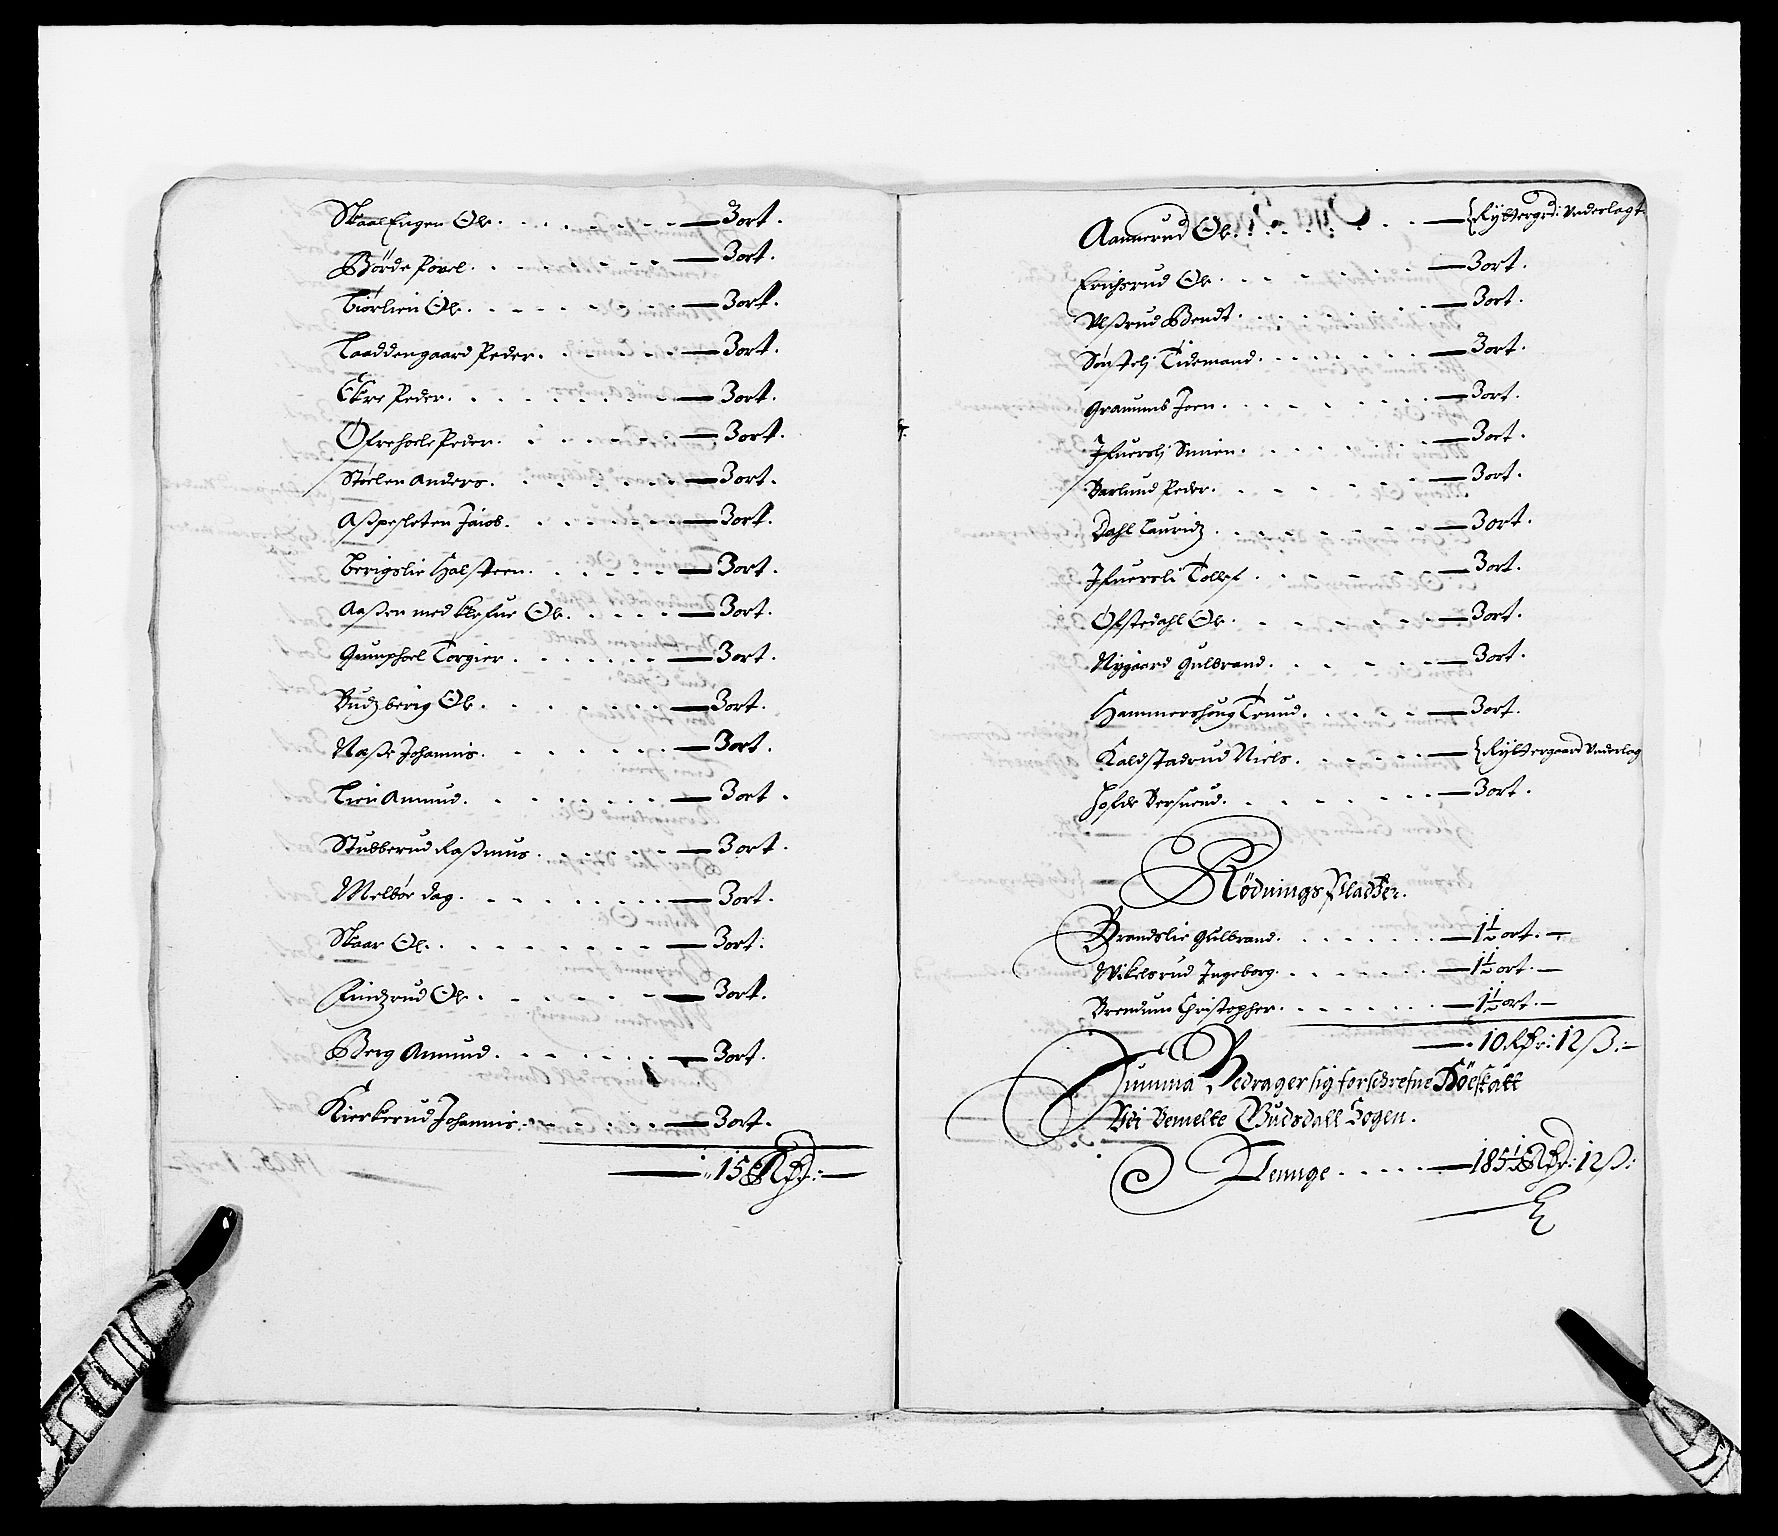 SkaalEngen Ole . . . . . . — 3ort.
Börde Povel . . . . . . — 3ort.
Liörlien Ole . . . . . . — 3ort.
Laaddengaard Peder . . . . — 3ort.
Ekre Peder . . . . . . — 3ort.
Ofrehoele Peder . . . . . — 3ort.
Stöelen Anders . . . . . — 3ort.
Aßpesleten Jacob . . . . . — 3ort.
Berigslie Halsteen . . . . — 3ort.
Aaßen med Klefue Ole . . . . — 3ort.
Gumphoel Torgier . . . . . — 3ort.
Budzberig Ole . . . . . . — 3ort.
Næße Johannis . . . . . — 3ort.
Lien Amund . . . . . . — 3ort.
Stubberud Raßmus . . . . . — 3ort.
Melböe Dag . . . . . . — 3ort.
Skaar Ole . . . . . . — 3ort.
Findzrud Ole . . . . . — 3ort.
Berg Amund . . . . . — 3ort.
Kierkerud Johannis . . . . — 3ort.
— 15 Rdr: —
Aannerud Ole . . . . . — { Rÿttergrd: Underlagt
Erichsrud Ole . . . . . — 3ort.
Ulßrud Bendt . . . . . — 3ort.
Sönstelj Tidemand . . . . — 3ort.
Gramms Joen . . . . . — 3ort.
Ifuerslj Simen . . . . . — 3ort.
Barlund Peder . . . . . — 3ort.
Dahl Lauridz . . . . . — 3ort.
Ifuersli Tollef . . . . — 3ort.
Ofstedahl Ole . . . . . — 3ort.
Nygaard Gulbrand . . . . — 3ort.
Hammershoug Trund . . . . — 3ort.
Kaldstadrud Niels . . . . — { Rÿttergaard Underlag
Hofde Bersuend . . . . . — 3ort.
Rödnings Pladtzer.
Brandslie Gulbrand . . . . — 1½ ort. —
Mikelsrud Ingeborg . . . . — 1½ ort. —
Brendum Christopher . . . . — 1½ ort. —
— 10 Rdr: 12 ß: —
Summa Bedrager sig forschrefne Köeskatt
Udi Bemelte Budsdall Sogen.
Pennge . . . . — 185½ Rdr: 12 ß: